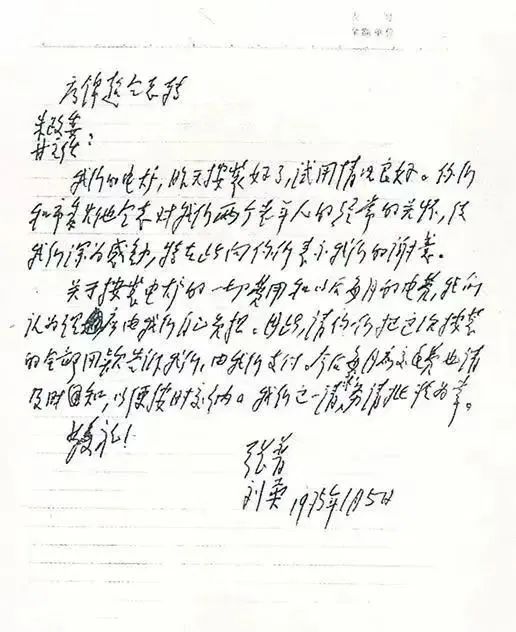 锦超仝志转
朱政委
甘主任:
我们的电灶,昨天按装好了,试用情况良好。你们
和市委其他仝志对我们两个老年人的经常的关怀,使
我们深为感动,特在此向你们表示我们的谢意。
关于按装电灶的一切费用和以后每月的电费,我们
认为应由我们自己负担。因此,请你们把这次按装
的全部用款告诉我们,由我们支付。今后每月应交电费也请
及时通知,以便按时交纳。我们这一请求,务请批准为幸。
敬礼!
张普
刘英 1975年1月5日